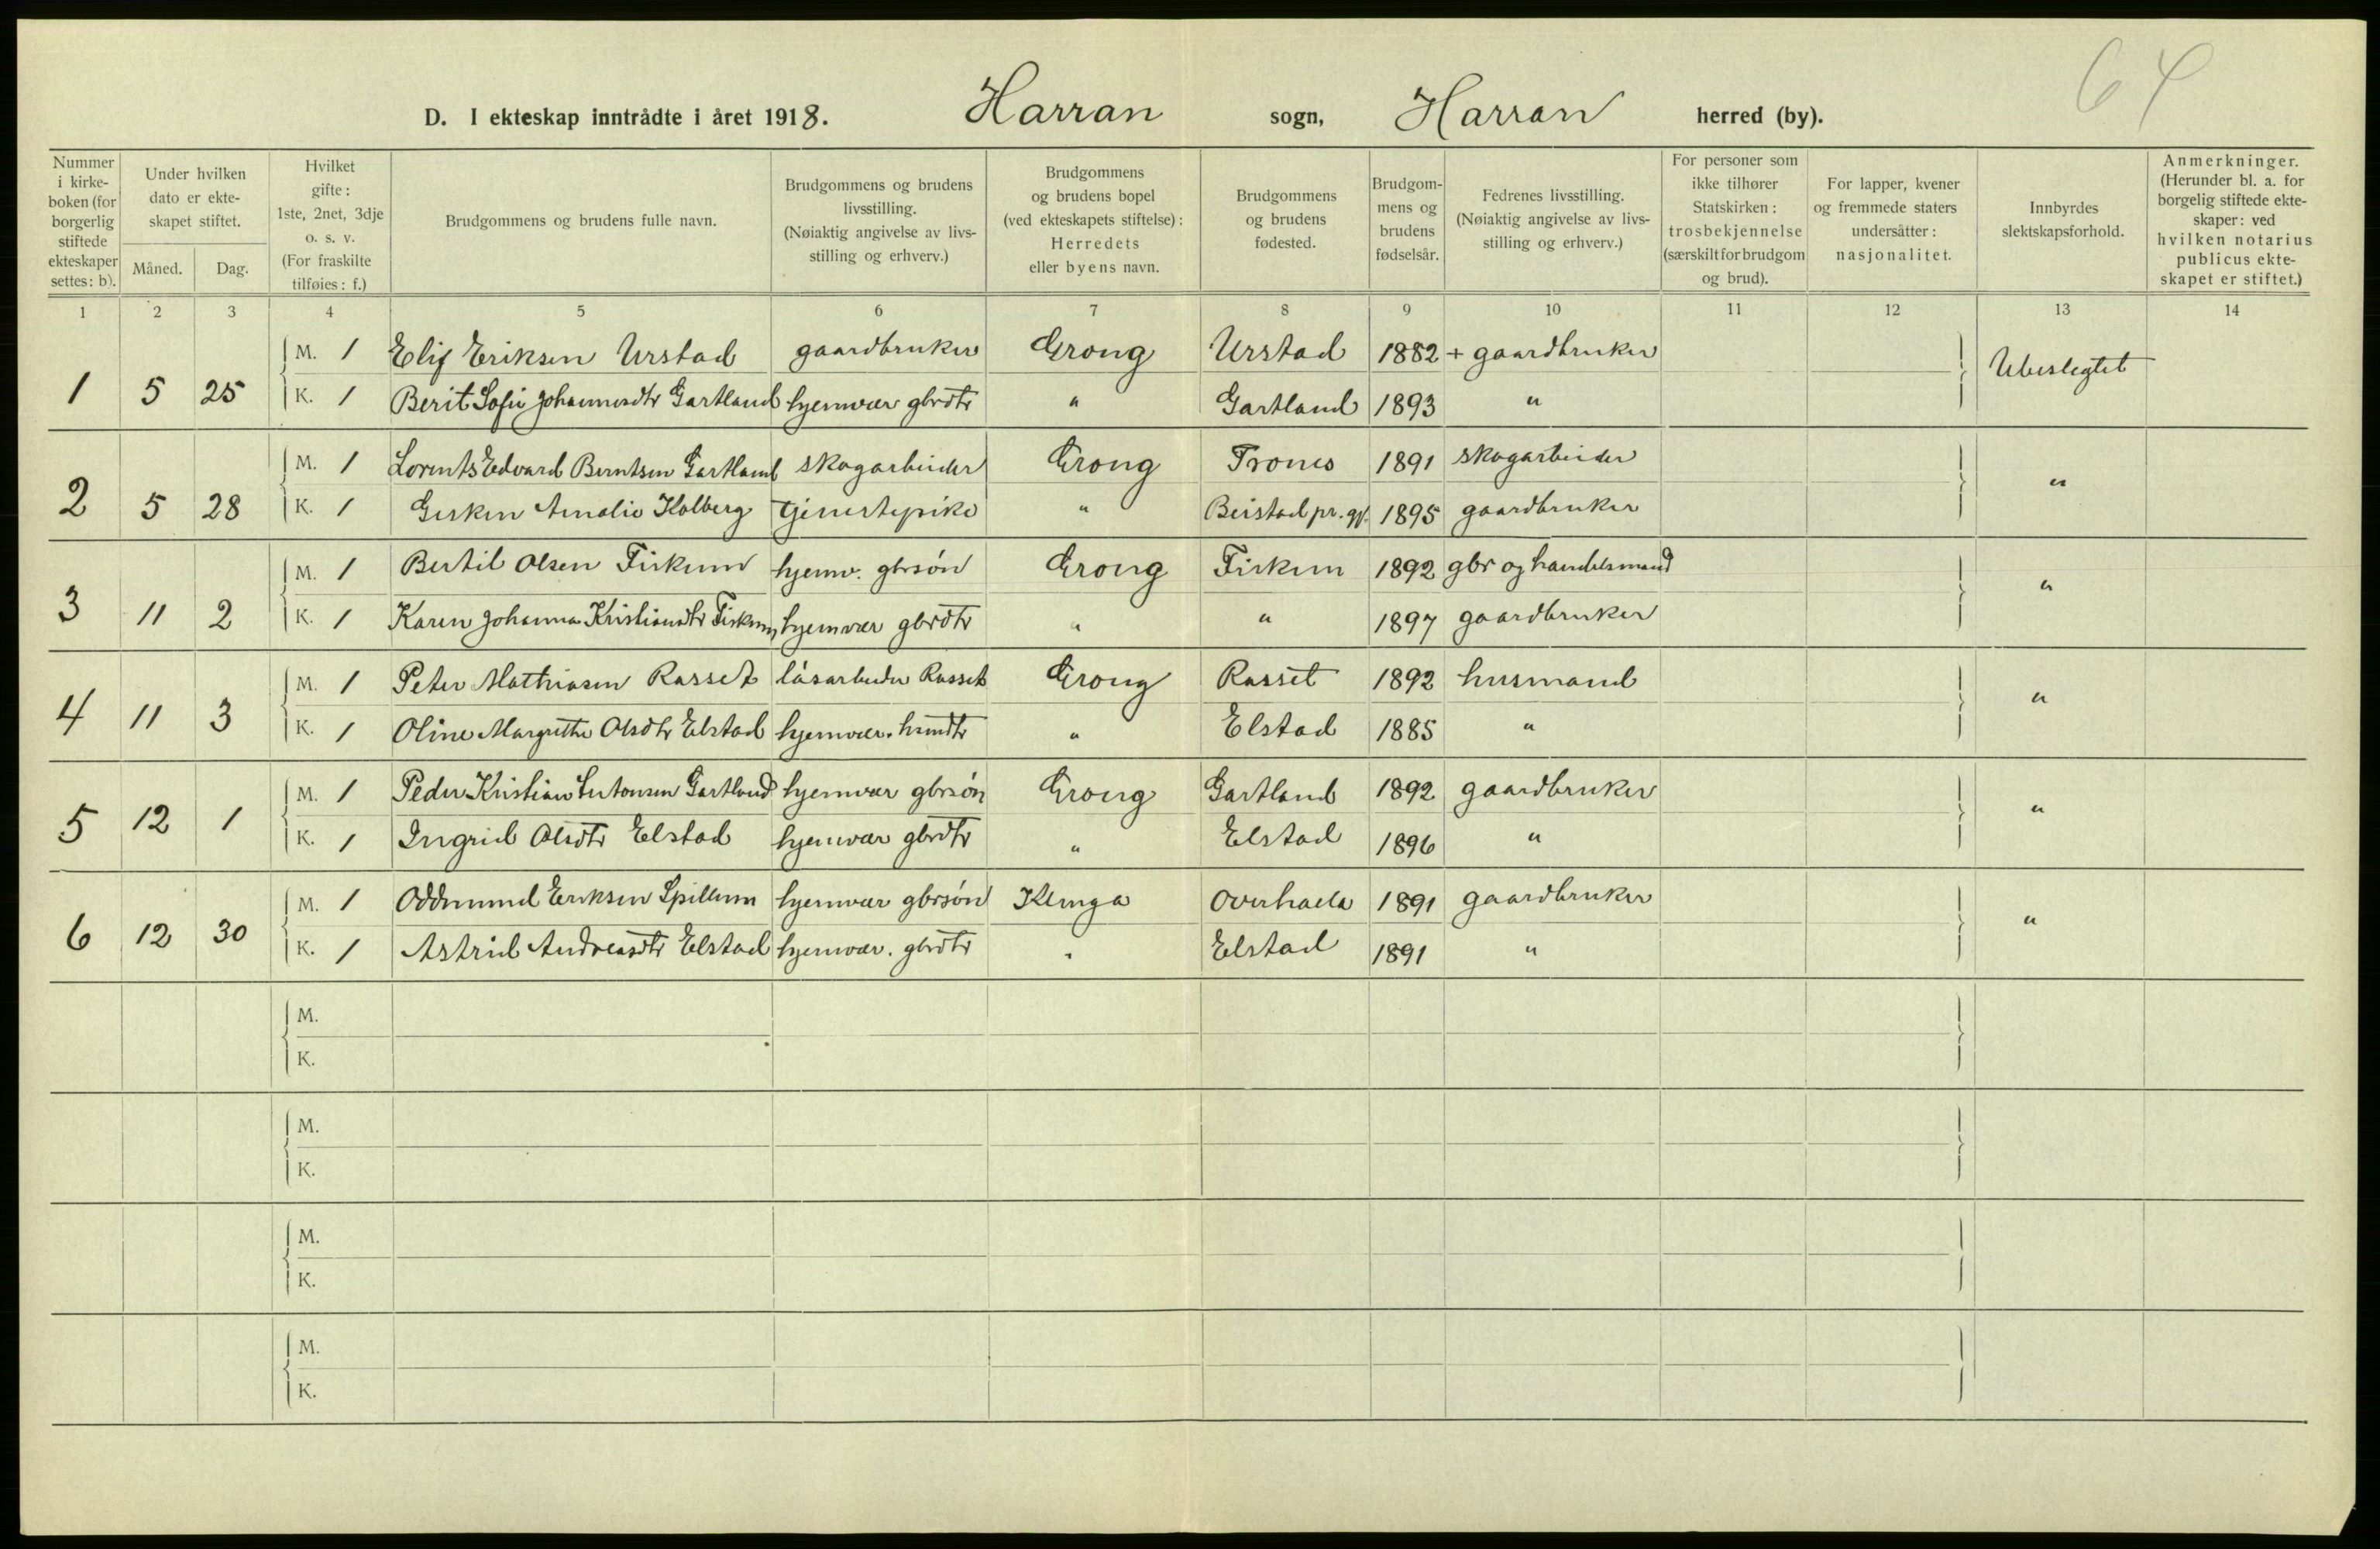 64
D. I ekteskap inntrådte i året 1918. Harran sogn, Harran herred (by).
Nummer i kirkeboken (for borgerlig stiftede ekteskaper settes: b).
Under hvilken dato er ekteskapet stiftet.
Måned. Dag.
Hvilket gifte: 1ste, 2net, 3dje o. s. v. (For fraskilte tilføies: f.)
Brudgommens og brudens fulle navn.
Brudgommens og brudens livsstilling. (Nøiaktig angivelse av livsstilling og erhverv.)
Brudgommens og brudens bopel (ved ekteskapets stiftelse): Herredets eller byens navn.
Brudgommens og brudens fødested.
Brudgommens og brudens fødselsår.
Fedrenes livsstilling. (Nøiaktig angivelse av livsstilling og erhverv.)
For personer som ikke tilhører Statskirken: trosbekjennelse (særskilt for brudgom og brud).
For lapper, kvener og fremmede staters undersåtter: nasjonalitet.
Innbyrdes slektskapsforhold.
Anmerkninger. (Herunder bl. a. for borgelig stiftede ekteskaper: ved hvilken notarius publicus ekteskapet er stiftet.)
1 2 3 4 5 6 7 8 9 10 11 12 13 14
M. 1 Elif Eriksen Urstad gaardbruker Grong Urstad 1882 + gaardbruker Ubeslegtet
1 5 25 K. 1 Berit Sofie Johannesdtr Gartland hjemvær gbrdtr " Gartland 1893 "
M. 1 Lorents Edvard Berntsen Gartland skogarbeider Grong Trones 1891 skogarbeider "
2 5 28 K. 1 Gesken Amalie Kolberg tjenestepike " Beistad pr. gj. 1895 gaardbruker
M. 1 Bertil Olsen Fiskum hjemv. gbrsøn Grong Fiskum 1892 gbr og handelsmand "
3 11 2 K. 1 Karen Johanna Kristiansdtr Fiskum hjemvær gbrdtr " " 1897 gaardbruker
M. 1 Peter Mathiasen Rasset løsarbeider Rasset Grong Rasset 1892 husmand "
4 11 3 K. 1 Oline Margrethe Olsdtr Elstad hjemvær. husmdtr " Elstad 1885 "
M. 1 Peder Kristian Antonsen Gartland hjemvær gbrsøn Grong Gartland 1892 gaardbruker "
5 12 1 K. 1 Ingrid Olsdtr Elstad hjemvær gbrdtr " Elstad 1896 "
M. 1 Oddmund Eriksen Spillum hjemvær gbrsøn Klinga Overhalla 1891 gaardbruker "
6 12 30 K. 1 Astrid Andreasdtr Elstad hjemvær. gbrdtr " Elstad 1891 "
M.
K.
M.
K.
M.
K.
M.
K.